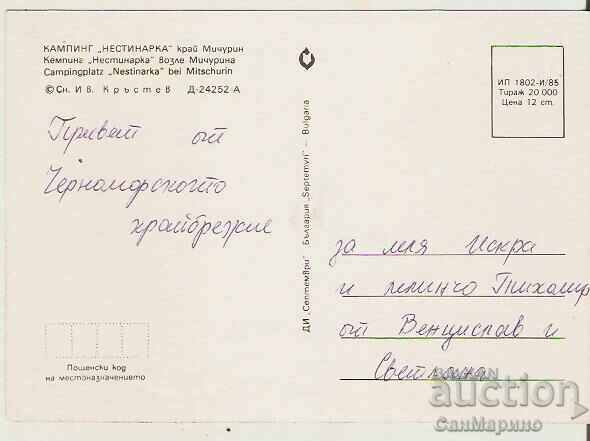 КАМПИНГ „НЕСТИНАРКА" край Мичурин
Кемпинг „Нестинарка" возле Мичурина
Campingplatz „Nestinarka" bei Mitschurin
© Сн. Ив. Кръстев Д-24252-А
Привет от
Черноморското
крайбрежие
Пощенски код
на местоназначението
ДИ „Септември" България „Septemvri" — Bulgaria
ИП 1802-И/85
Тираж 20 000
Цена 12 ст.
за леля Искра
и чинчо Тихомир
от Венцислав и
Светлана
BALKAN
auction
СанМарино